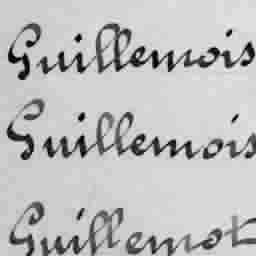 Guillemois
Guillemois
Guillemot